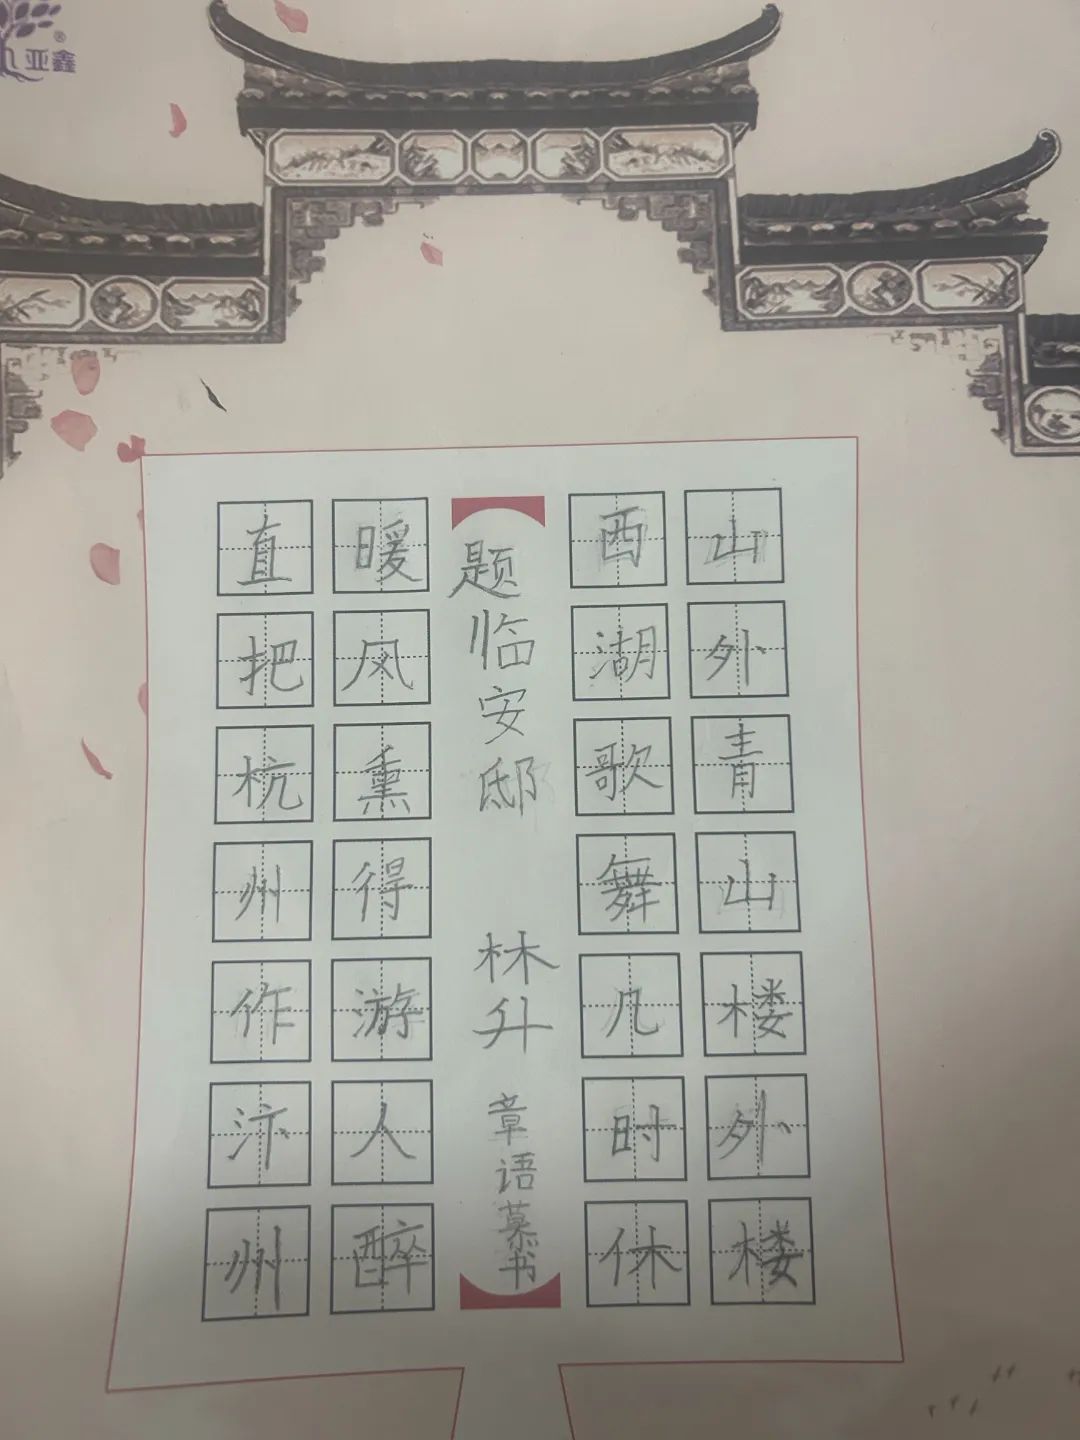 亚鑫®
山外青山楼外楼
西湖歌舞几时休
题临安邸 林升 章语慕书
暖风熏得游人醉
直把杭州作汴州